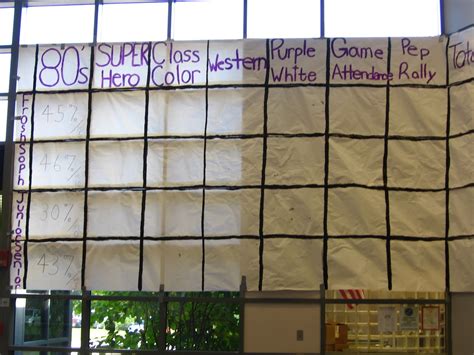 80's SUPER Hero Class Color Western Purple White Game Attendance Pep Rally Tota
Frosh 45%
Soph 46%
Junior 30%
Senior 43%